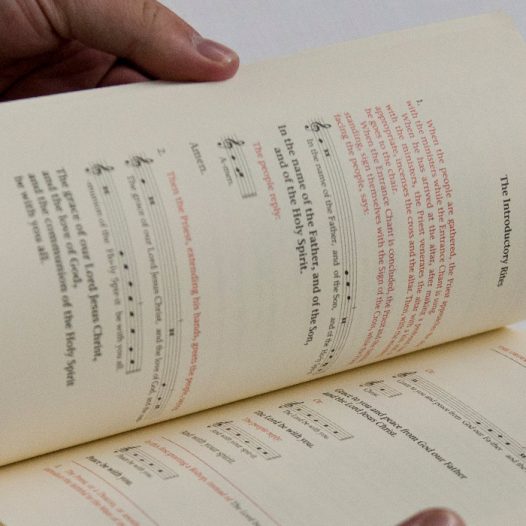 The Introductory Rites
1. When the people are gathered, the Priest approaches
with the ministers while the Entrance Chant is sung.
When he has arrived at the altar, after making
with the ministers, the Priest venerates the altar with a
appropriate, incenses the cross and the altar. Then, with
he goes to the chair.
When the Entrance Chant is concluded, the Priest and the
standing, sign themselves with the Sign of the Cross, while
facing the people, says:
In the name of the Father, and of the Son, and of the Holy
In the name of the Father, and of the Son,
and of the Holy Spirit.
The people reply:
A-men.
Amen.
2. Then the Priest, extending his hands, greets the people, saying:
The grace of our Lord Jesus Christ, and the love of God, and the
communion of the Holy Spir-it be with you all.
The grace of our Lord Jesus Christ,
and the love of God,
and the communion of the Holy Spirit
be with you all.
Or:
Grace to you and peace from God our Father and the
Christ.
Grace to you and peace from God our Father
and the Lord Jesus Christ.
Or:
The Lord be with you.
The Lord be with you.
The people reply:
And with your spirit.
And with your spirit.
Peace be with you.